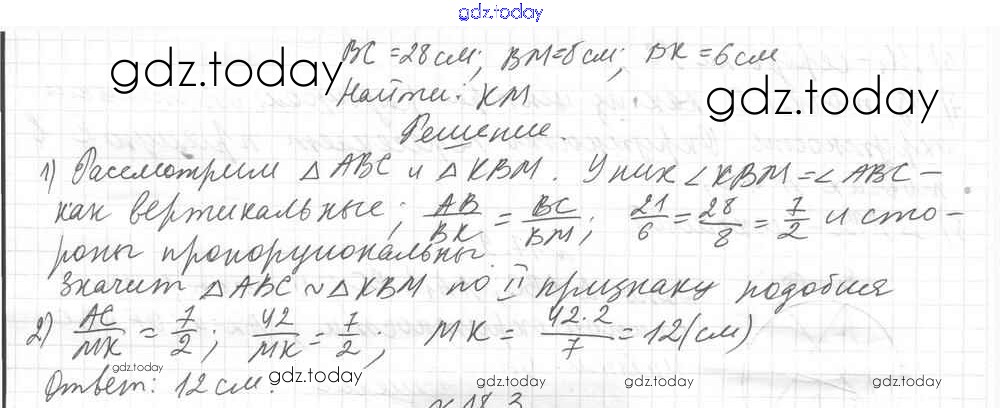 gdz.today
BC = 28 см; BM = 8 см; BK = 6 см
gdz.today
Найти: KM
gdz.today
Решение.
1) Рассмотрим △ABC и △KBM. У них ∠KBM = ∠ABC –
как вертикальные; AB/BK = BC/BM; 21/6 = 28/8 = 7/2 и сто-
роны пропорциональны.
Значит △ABC ~ △KBM по II признаку подобия
2) AC/MK = 7/2; 42/MK = 7/2; MK = 42·2/7 = 12 (см)
Ответ: 12 см.
gdz.today
gdz.today
gdz.today
gdz.today
18.3